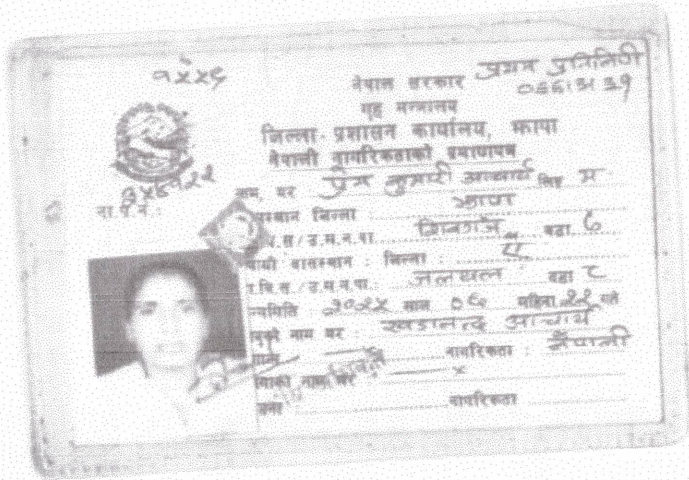 १५५६
नेपाल सरकार प्रथम प्रतिलिपी
गृह मन्त्रालय
जिल्ला प्रशासन कार्यालय, झापा
नेपाली नागरिकताको प्रमाणपत्र
ना.प्र.नं.:
नाम, थर प्रेम कुमारी आचार्य लिङ्ग म
जन्मस्थान जिल्ला : झापा
गा.वि.स/उ.म.न.पा. शिवगंज वडा ६
स्थायी वासस्थान : जिल्ला : ऐ
गा.वि.स./उ.म.न.पा. जलथल वडा ८
जन्ममिति : २०२५ साल ०६ महिना २२ गते
बाबुको नाम थर : खडानन्द आचार्य
नागरिकता : नेपाली
आमाको नाम, थर : x
नागरिकता